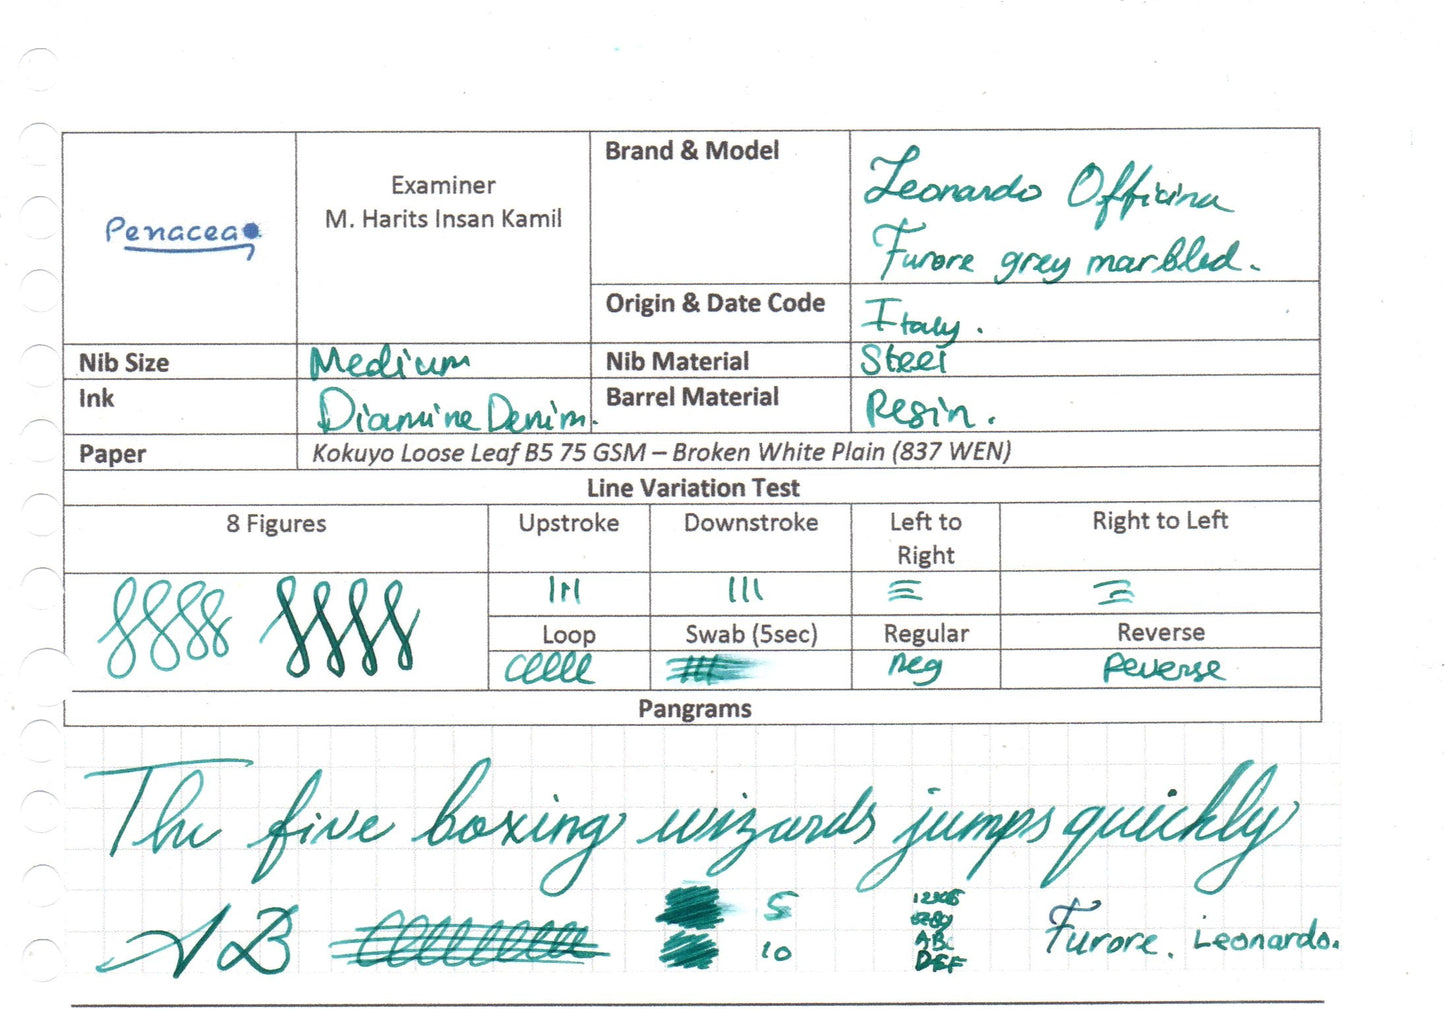 Penacea
Examiner
M. Harits Insan Kamil
Brand & Model
Leonardo Officina
Furore grey marbled.
Origin & Date Code
Italy.
Nib Size
Medium
Nib Material
Steel
Ink
Diamine Denim.
Barrel Material
Resin.
Paper
Kokuyo Loose Leaf B5 75 GSM – Broken White Plain (837 WEN)
Line Variation Test
8 Figures
Upstroke
Downstroke
Left to
Right
Right to Left
Loop
Swab (5sec)
Regular
Reverse
Reg
Reverse
Pangrams
The five boxing wizards jumps quickly
AB
5
10
ABC
DEF
Furore. Leonardo.